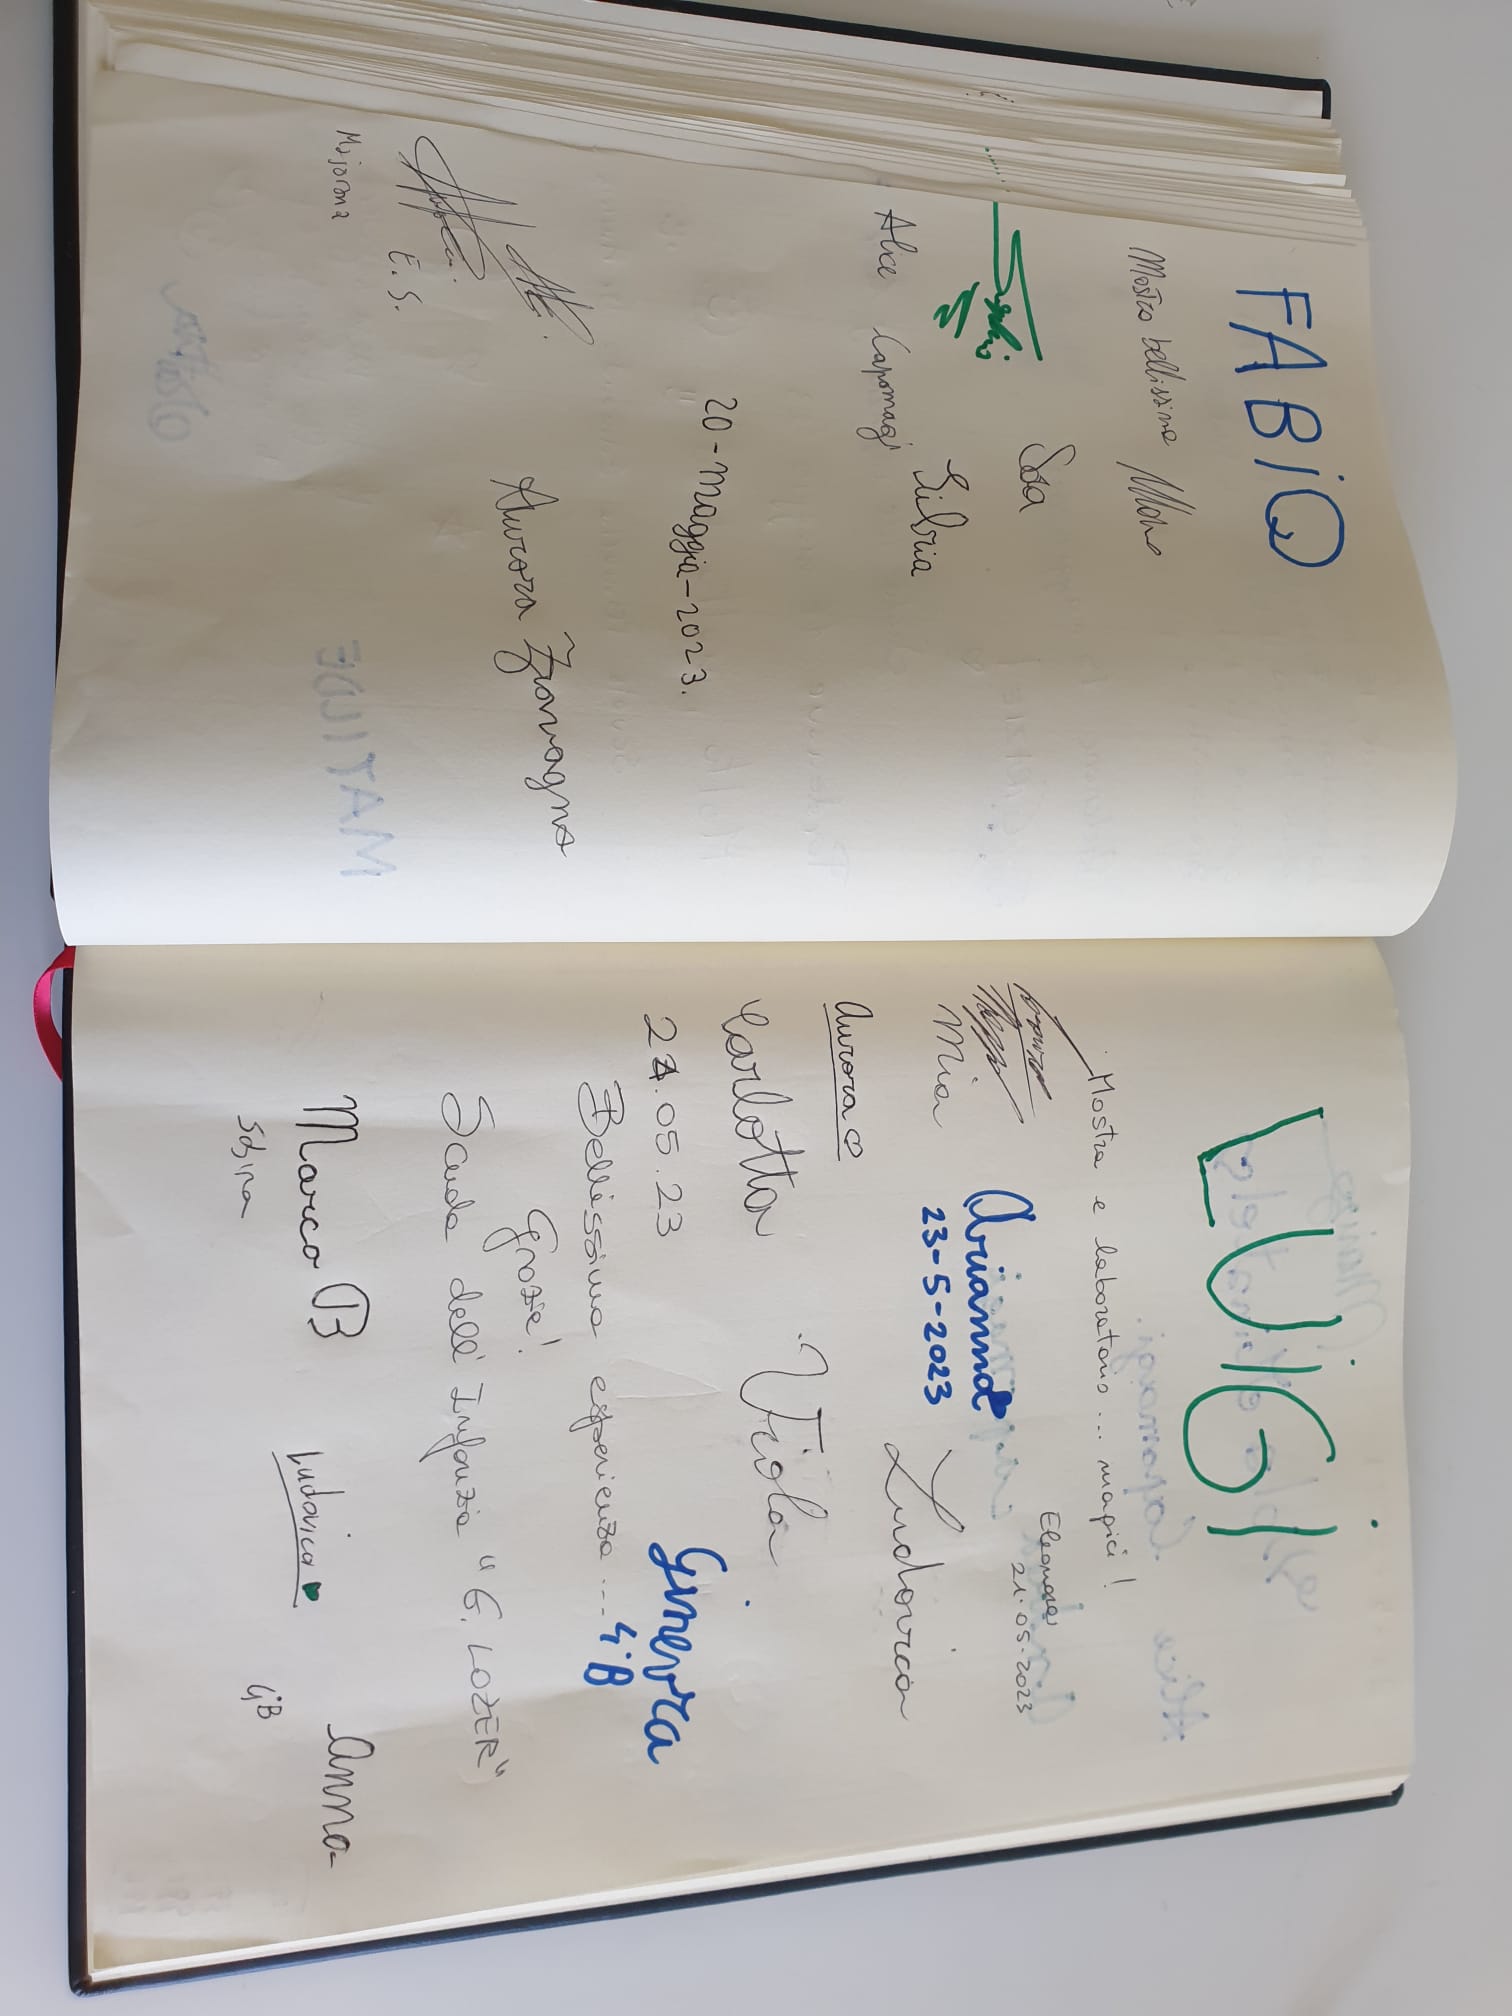 FABIO
Mostra bellissima
Sara
Silvia
Alice Capomagi
20-maggio-2023.
Aurora Zgravagna
E. S.
Majorana
LUIGI
Mostra e laboratorio... magici!
Eleonora
21.05.2023
Mia
Arianna
23-5-2023
Ludovica
Aurora ♡
Carlotta
Viola
24.05.23
Ginevra
4ªB
Bellissima esperienza...
Grazie!
Scuola dell'Infanzia "G. LOZER"
Marco B
Ludovica
Anna
4ªB